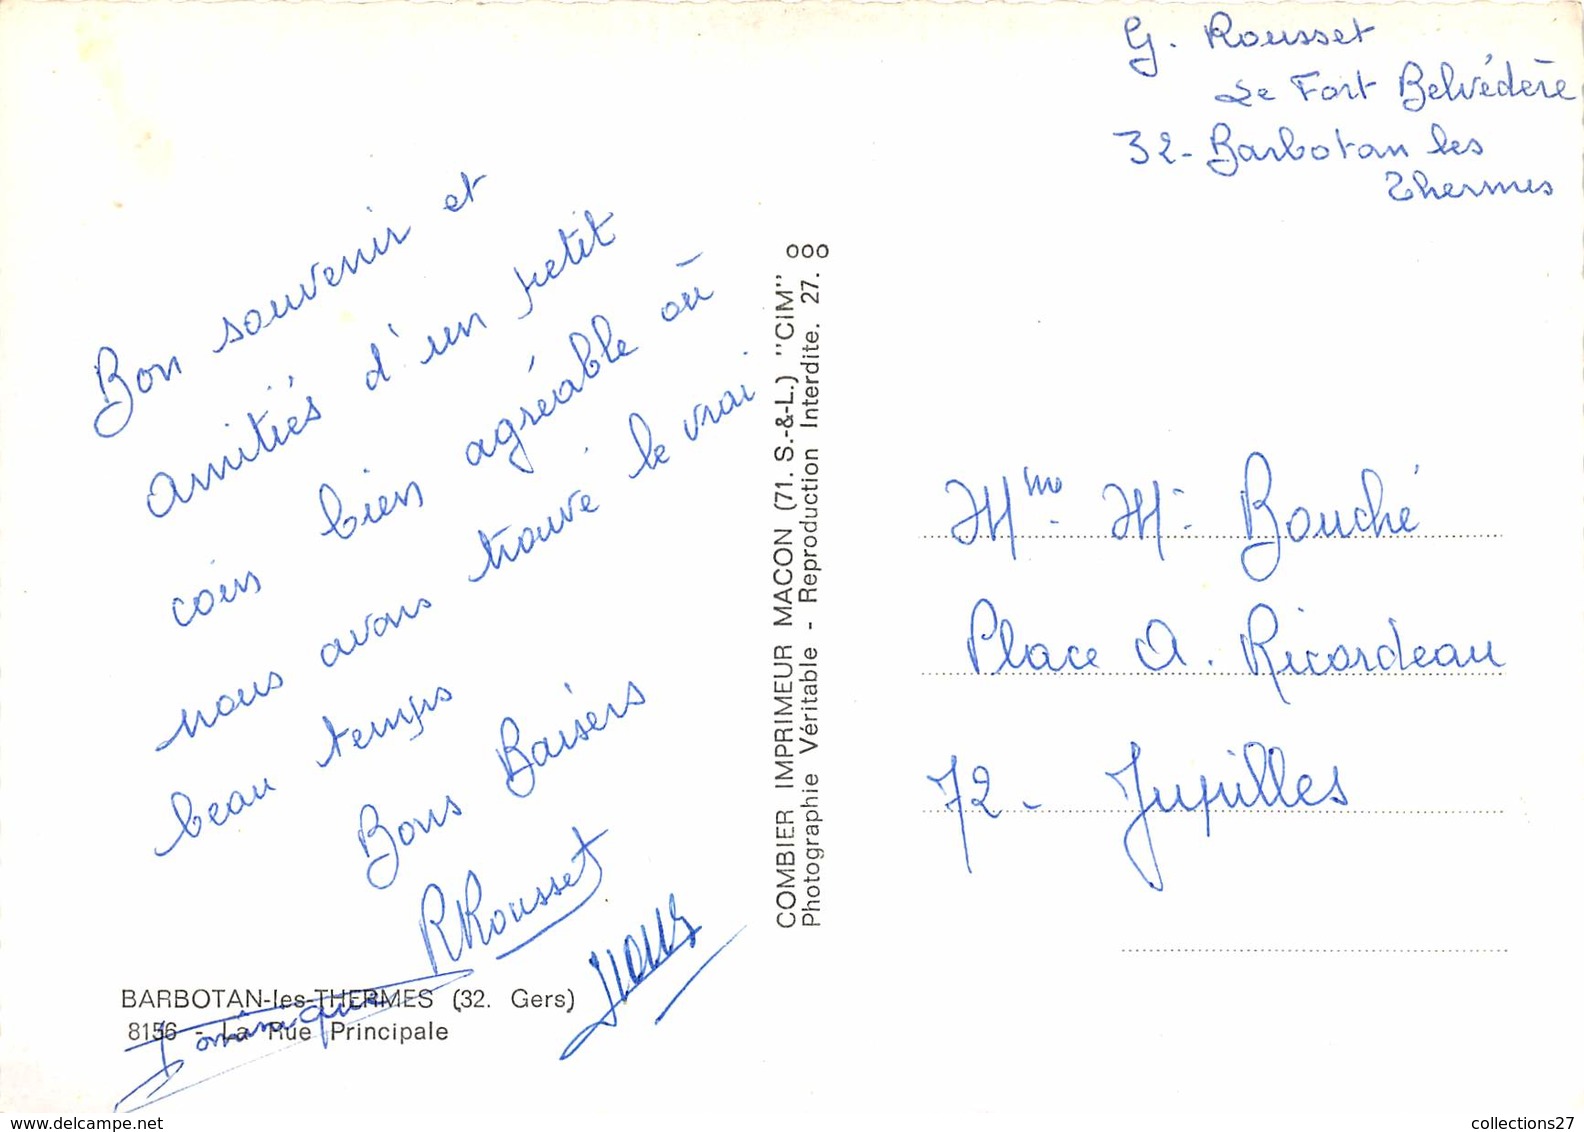 G. Rousset
Le Fort Belvédère
32 - Barbotan les
Thermes
Bon souvenir et
amitiés d'un petit
coin bien agréable où
nous avons trouvé le vrai
beau temps
Bons Baisers
R Rousset
Dominique
BARBOTAN-les-THERMES (32. Gers)
8156 - La Rue Principale
COMBIER IMPRIMEUR MACON (71. S.-&-L.) "CIM"
Photographie Véritable - Reproduction Interdite. 27.
Mme M. Bouché
Place A. Ricordeau
72 - Jupilles
collections27